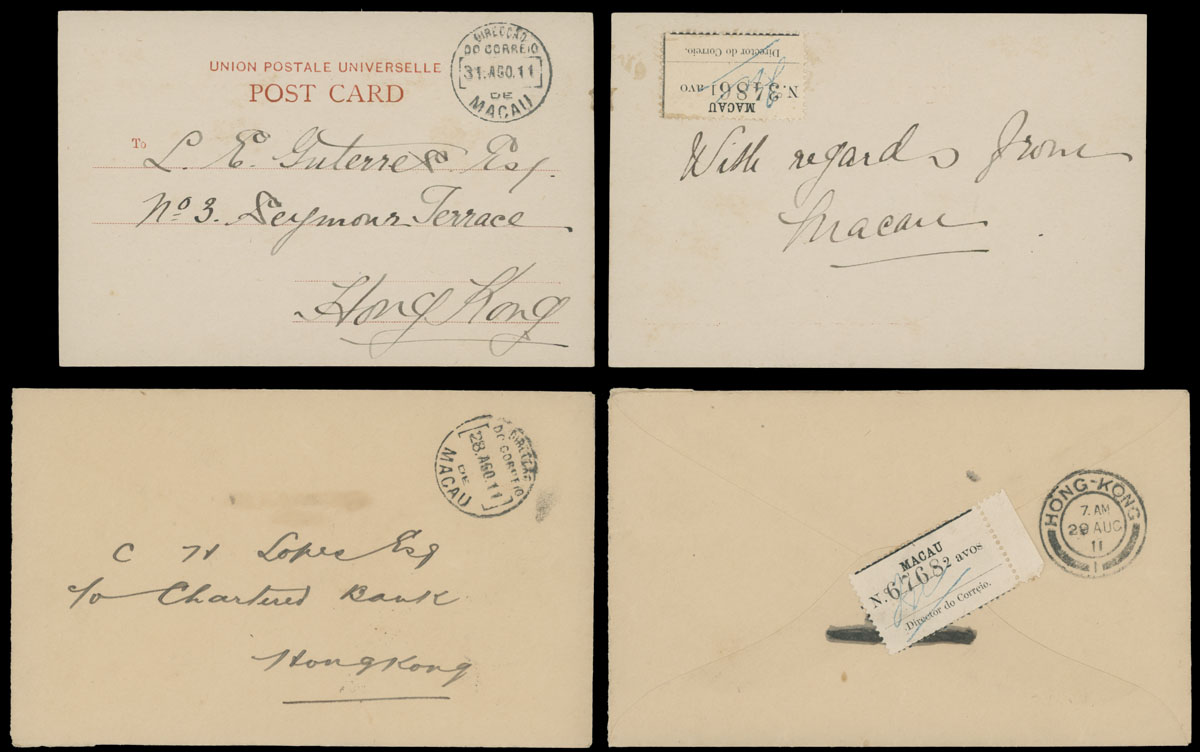 UNION POSTALE UNIVERSELLE
POST CARD
DIRECÇÃO
DO CORREIO
31.AGO.11
DE
MACAU
To
L. E. Guterres Esq.
Nº 3. Seymour Terrace
Hong Kong
MACAU
N. 34861 avo
Director do Correio.
With regards from
Macau
DIRECÇÃO
DO CORREIO
28.AGO.11
DE
MACAU
C H Lopes Esq
c/o Chartered Bank
Hongkong
HONG-KONG
7. AM
29 AUG
11
1
MACAU
N. 6768 2 avos
Director do Correio.